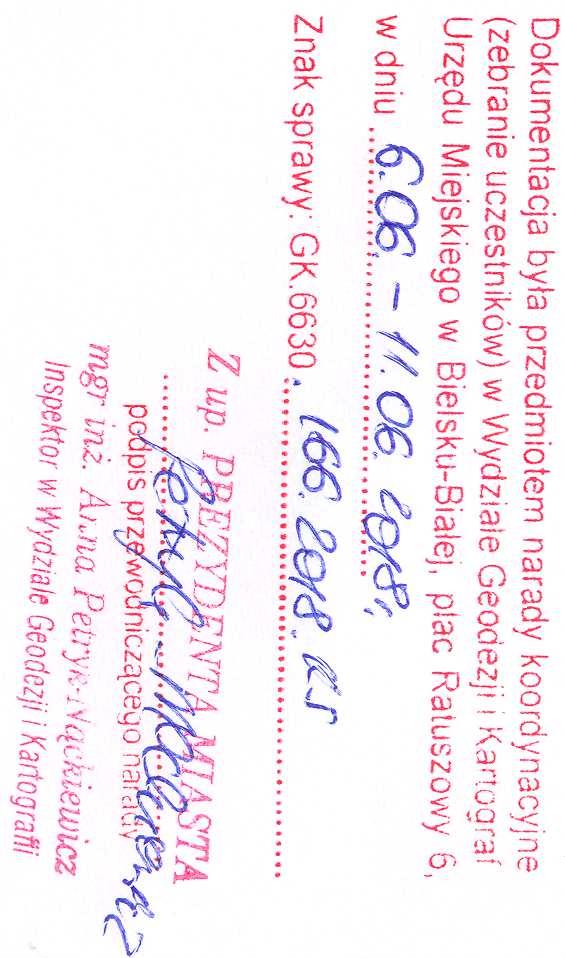 Dokumentacja była przedmiotem narady koordynacyjne
(zebranie uczestników) w Wydziale Geodezji i Kartograf
Urzędu Miejskiego w Bielsku-Białej, plac Ratuszowy 6,
w dniu 6.06. - 11.06. 2018r.
Znak sprawy: GK.6630. 166.2018.
Z up. PREZYDENTA MIASTA
podpis przewodniczącego narady
mgr inż. Anna Petryk-Mackiewicz
Inspektor w Wydziale Geodezji i Kartografii